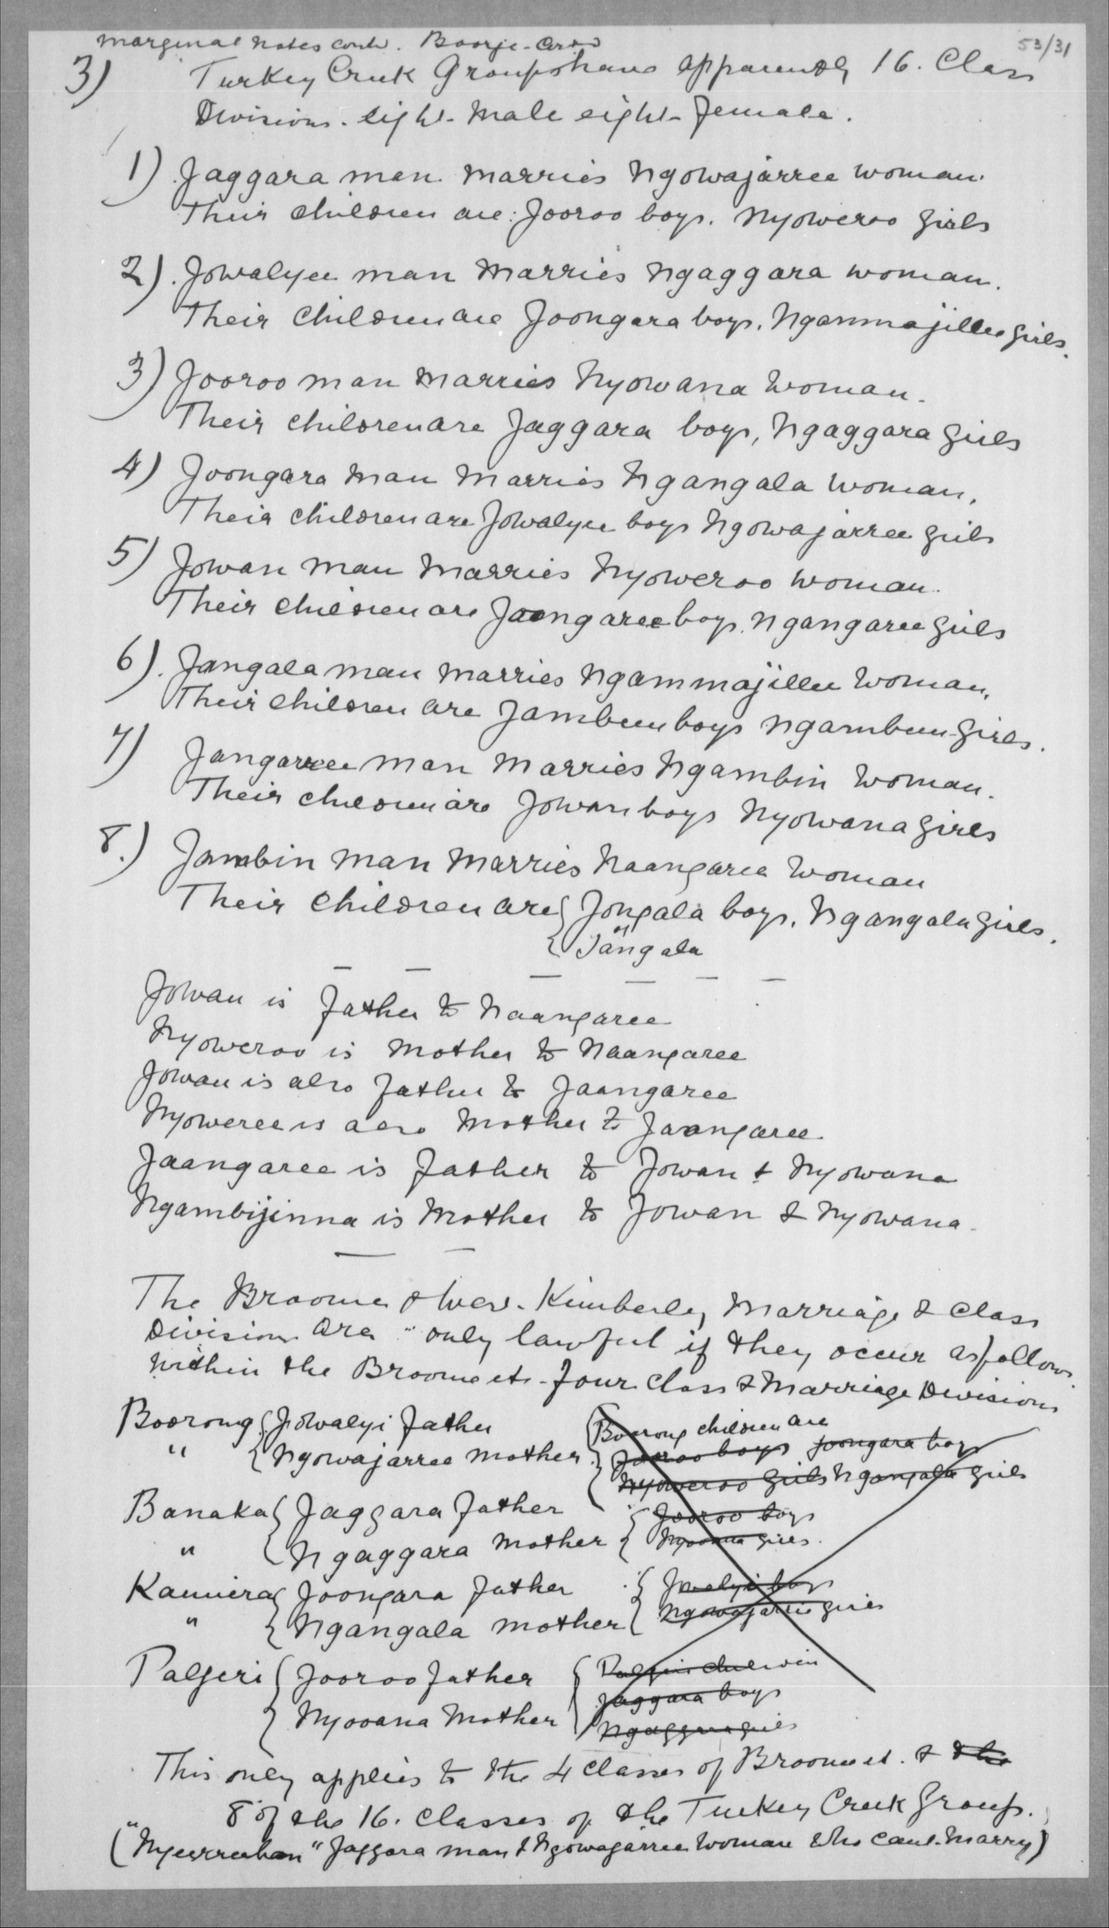 marginal notes contd. 53/31
3) Turkey Creek Groups have apparently 16. Class
Divisions. eight male eight female.
1) Jaggara man marries Ngowajarree woman.
Their children are: Jooroo boys. Nyoweroo girls
2) Jowalyee man marries Ngaggara woman.
Their children are Joongara boys, Ngammajillee girls.
3) Jooroo man marries Nyowana woman.
Their children are Jaggara boys, Ngaggara girls
4) Joongara man marries Ngangala woman,
Their children are Jowalyee boys Ngowajarree girls
5) Jowan man marries Nyoweroo woman.
Their children are Jaangaree boys, Ngangaree girls
6) Jangala man marries Ngammajillee woman,
Their children are Jambeen boys Ngambeen girls.
7) Jangaree man marries Ngambin woman.
Their children are Jowan boys Nyowana girls
8.) Jambin man marries Naangaree woman
Their children are { Jongala boys, Ngangala girls.
{ or Jangala
Jowan is father to Naangaree
Nyoweroo is mother to Naangaree
Jowan is also father to Jaangaree
Nyoweree is also mother to Jaangaree.
Jaangaree is father to Jowan & Nyowana
Ngambijinna is mother to Jowan & Nyowana.
The Broome & West Kimberley marriage & class
division are "only lawful if they occur as follows
within the Broome etc. four class & marriage divisions
Boorong { Jowalyi father { Boorong children are
" { Ngowajarree mother { Jooroo boys Joongara boys
Nyoweroo girls Ngangala girls
Banaka { Jaggara father { Jooroo boys
" { Ngaggara mother { Nyooana girls.
Kaimera { Joongara father { Jowalyi boys
" { Ngangala mother { Ngowajarree girls
Paljeri { Jooroo father { Paljeri children
{ Nyooana mother Jaggara boys
Ngaggara girls
This only applies to the 4 classes of Broome et. & the
8 of the 16. classes of the Turkey Creek Group.
( Jaggara man & Ngowajarree woman who cant marry)